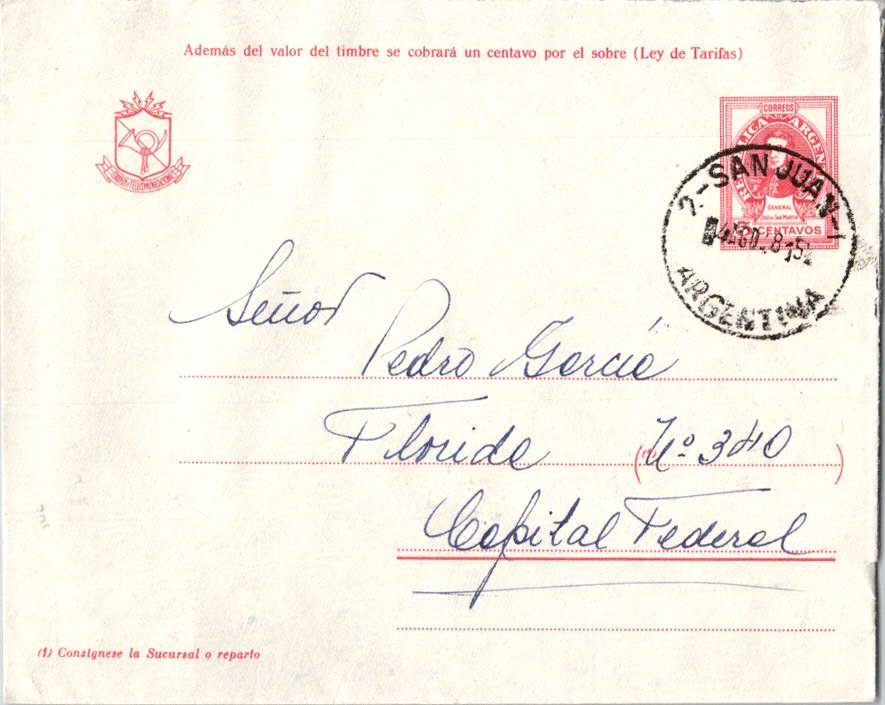 Además del valor del timbre se cobrará un centavo por el sobre (Ley de Tarifas)
CORREOS
GENERAL
JOSE DE SAN MARTIN
5 CENTAVOS
2.-SAN JUAN-1
ARGENTINA
CORREOS Y TELECOMUNICACIONES
Señor
Pedro García
Florida (1) Nº 340
Capital Federal
(1) Consígnese la Sucursal o reparto